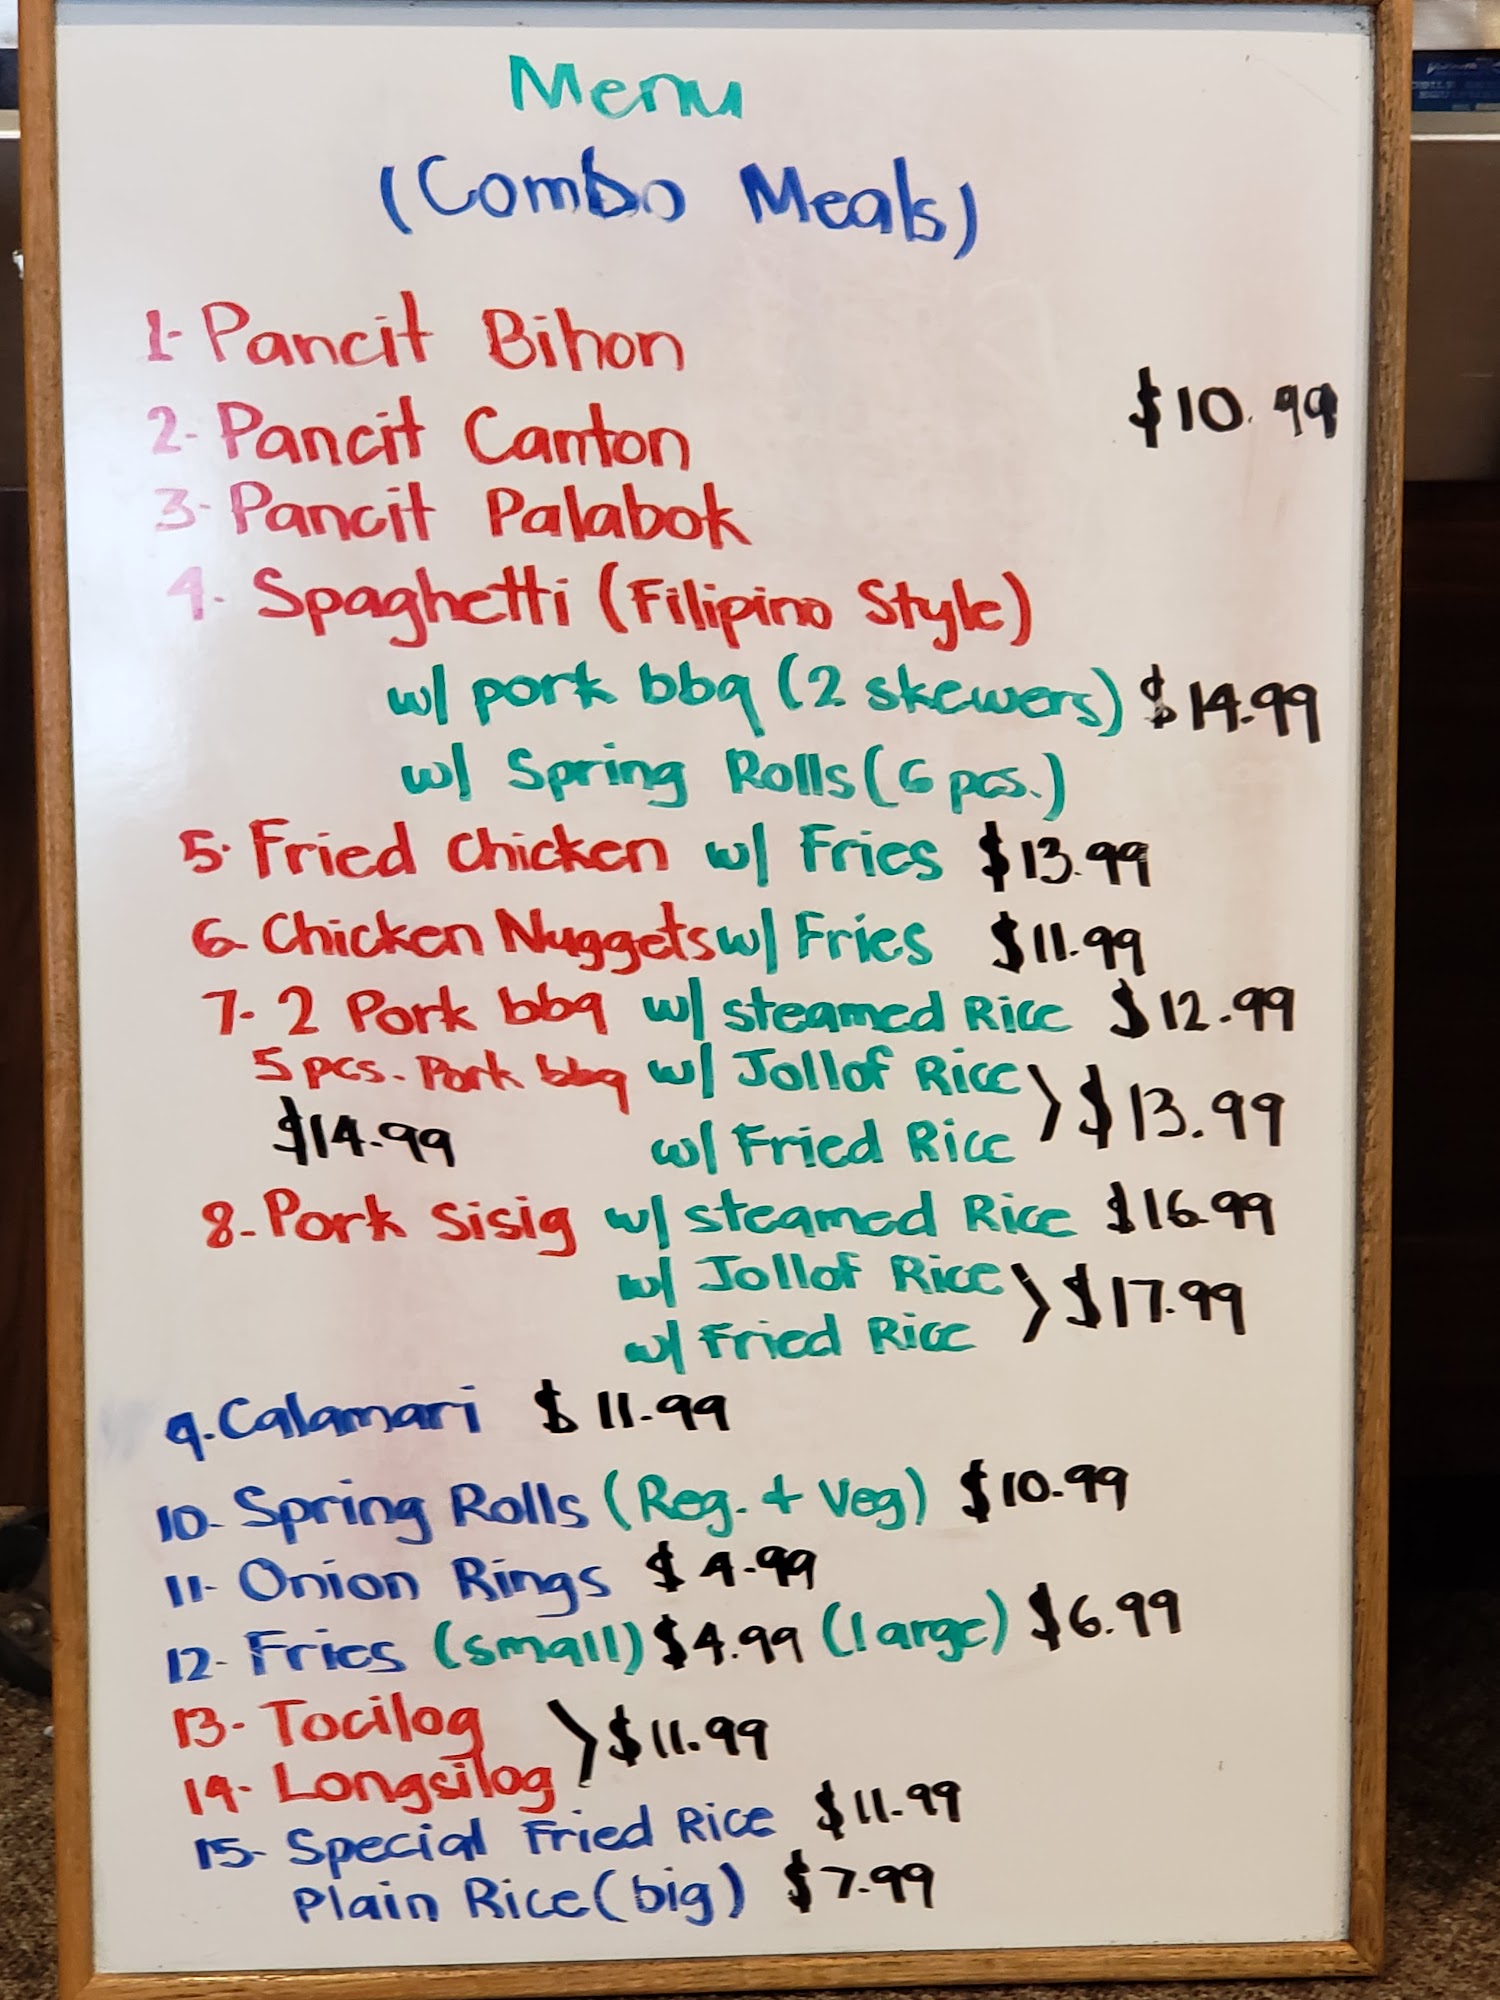 Menu
(Combo Meals)
1- Pancit Bihon
$10.99
2- Pancit Canton
3- Pancit Palabok
4- Spaghetti (Filipino Style)
w/ pork bbq (2 skewers) $14.99
w/ Spring Rolls (6 pcs.)
5. Fried Chicken w/ Fries $13.99
6- Chicken Nuggets w/ Fries $11.99
7- 2 Pork bbq w/ steamed Rice $12.99
5 pcs. Pork bbq w/ Jollof Rice > $13.99
$14.99 w/ Fried Rice
8- Pork Sisig w/ steamed Rice $16.99
w/ Jollof Rice > $17.99
w/ Fried Rice
9. Calamari $11.99
10- Spring Rolls (Reg. + Veg) $10.99
11- Onion Rings $4.99
12- Fries (small) $4.99 (large) $6.99
13- Tocilog > $11.99
14- Longsilog
15- Special Fried Rice $11.99
Plain Rice (big) $7.99